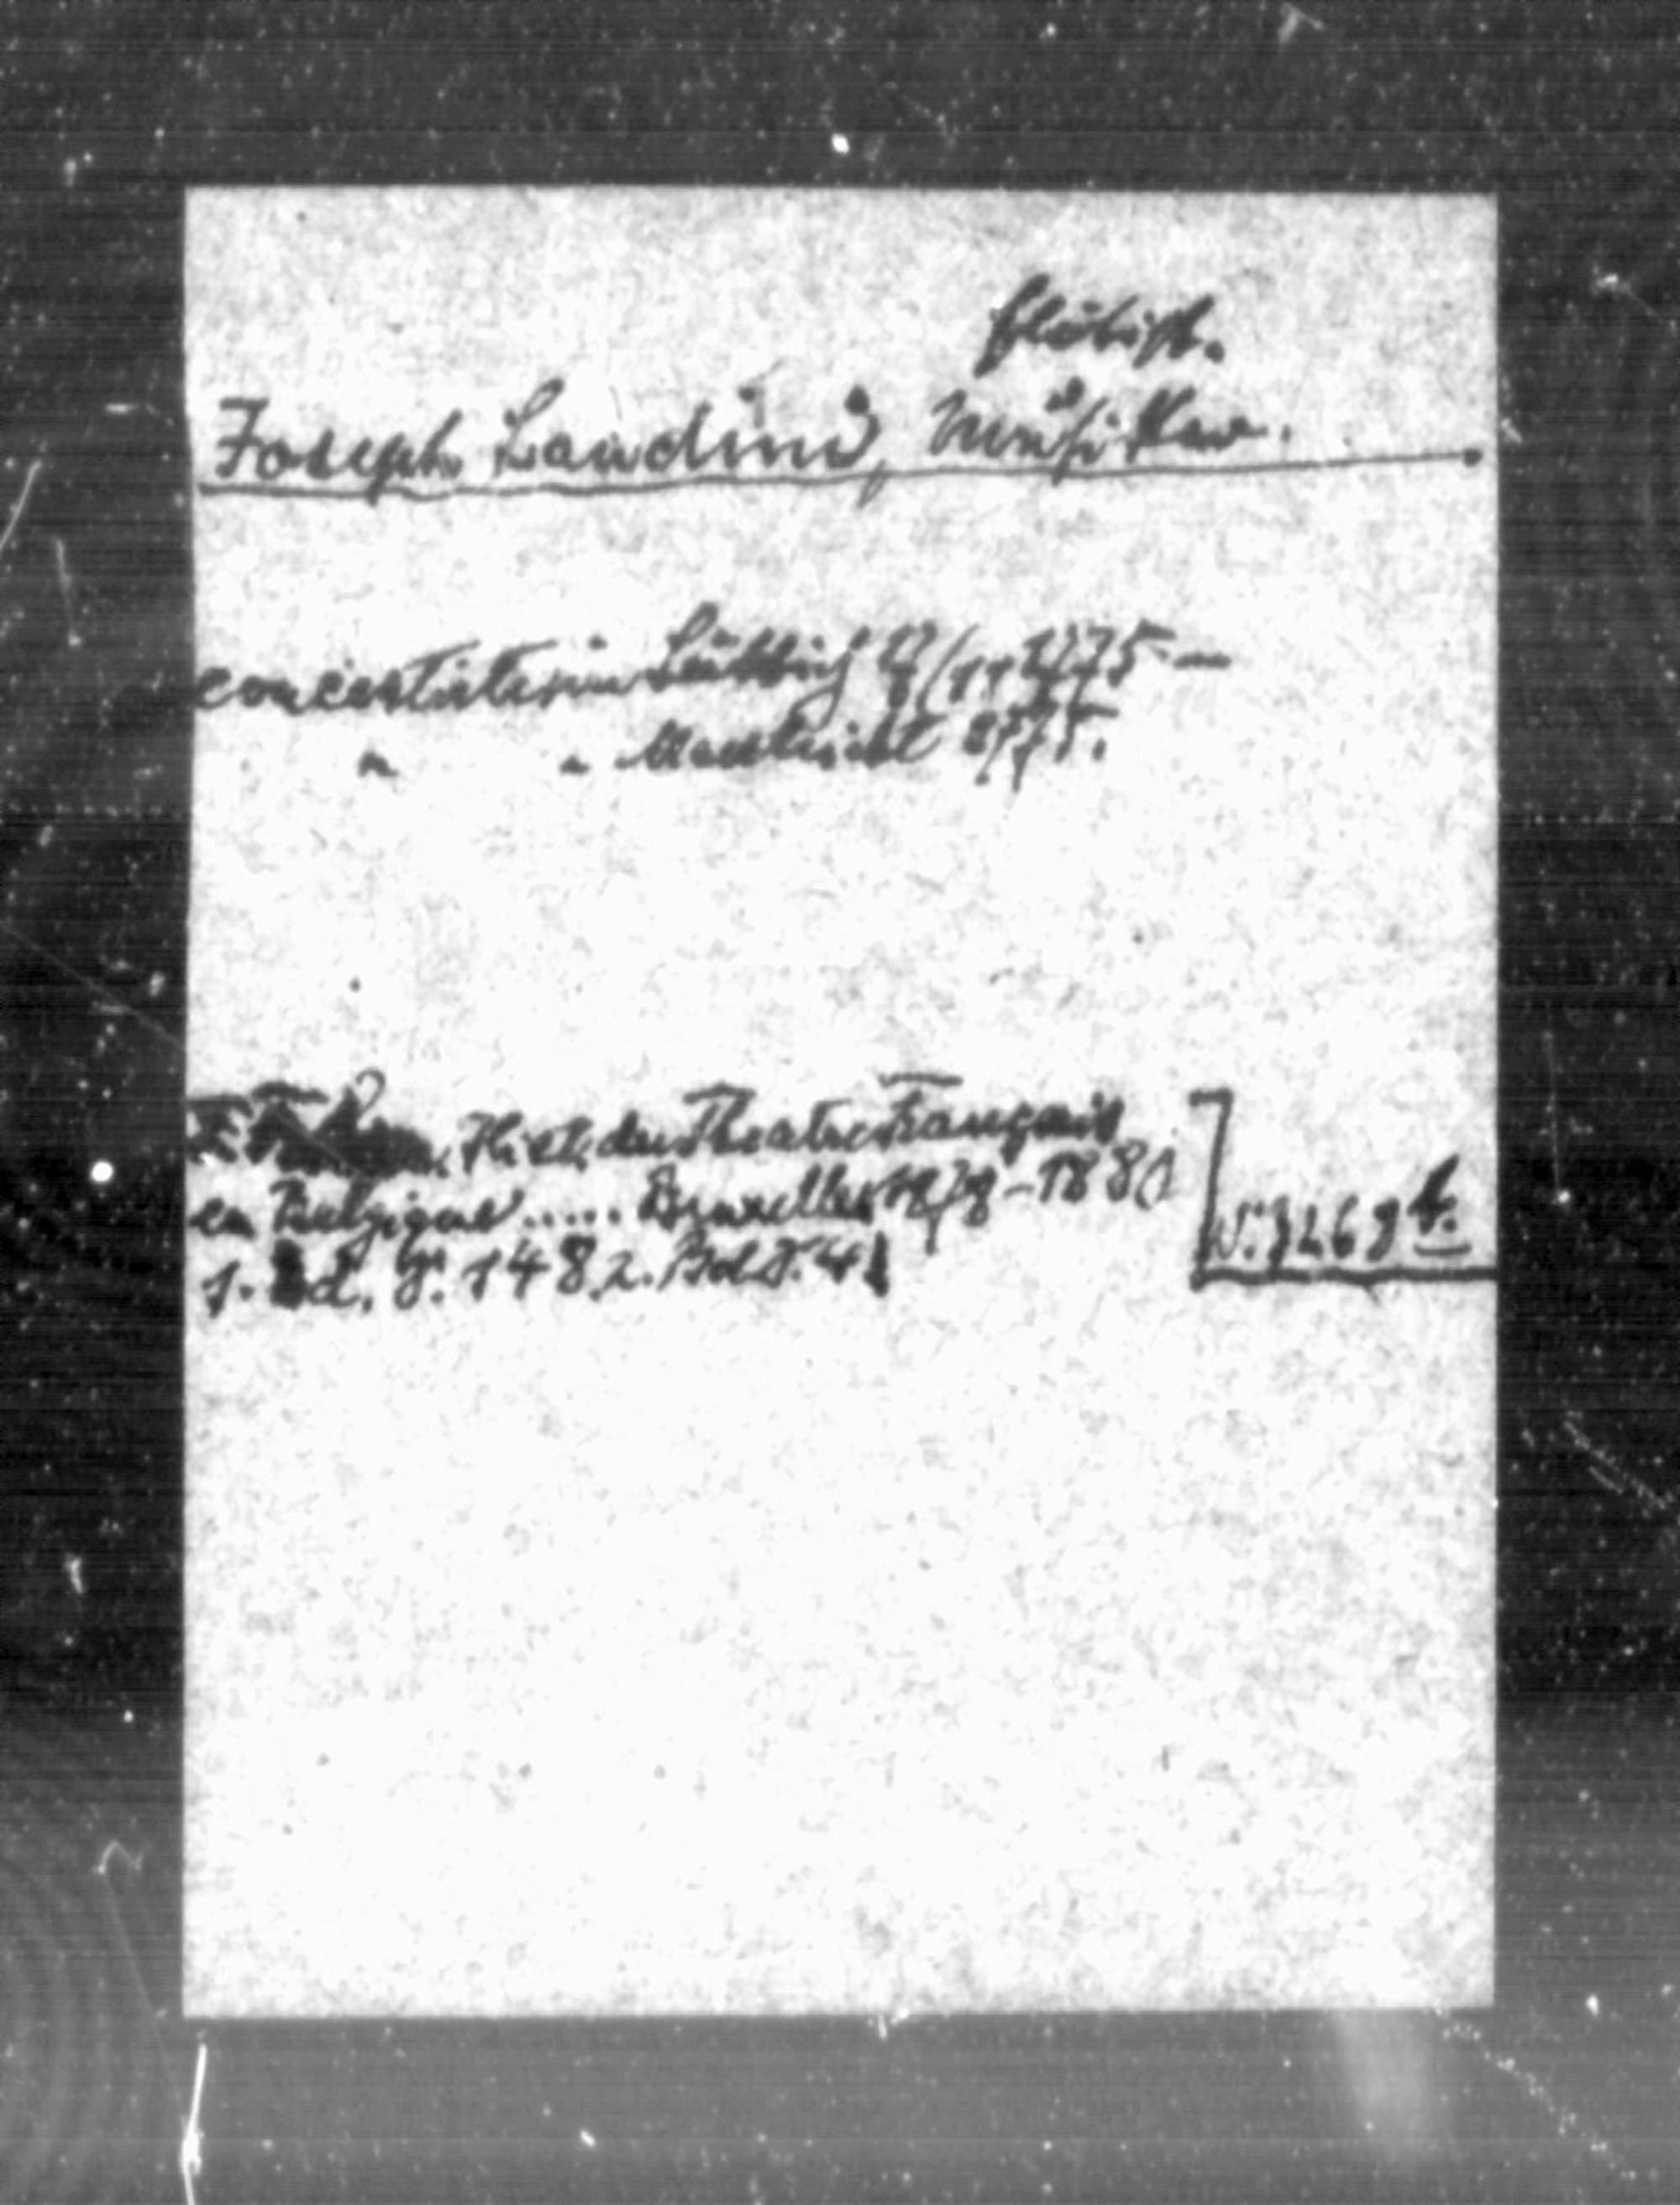 Flötist.
Joseph Landini, Musiker.
concertirte in Lüttich 12/11 1775 –
" " Mastricht 1775.
F. Faber, Hist. du Theatre Français
en Belgique ..... Bruxelles 1878–1880
1. Bd. S. 148 2. Bd S. 41